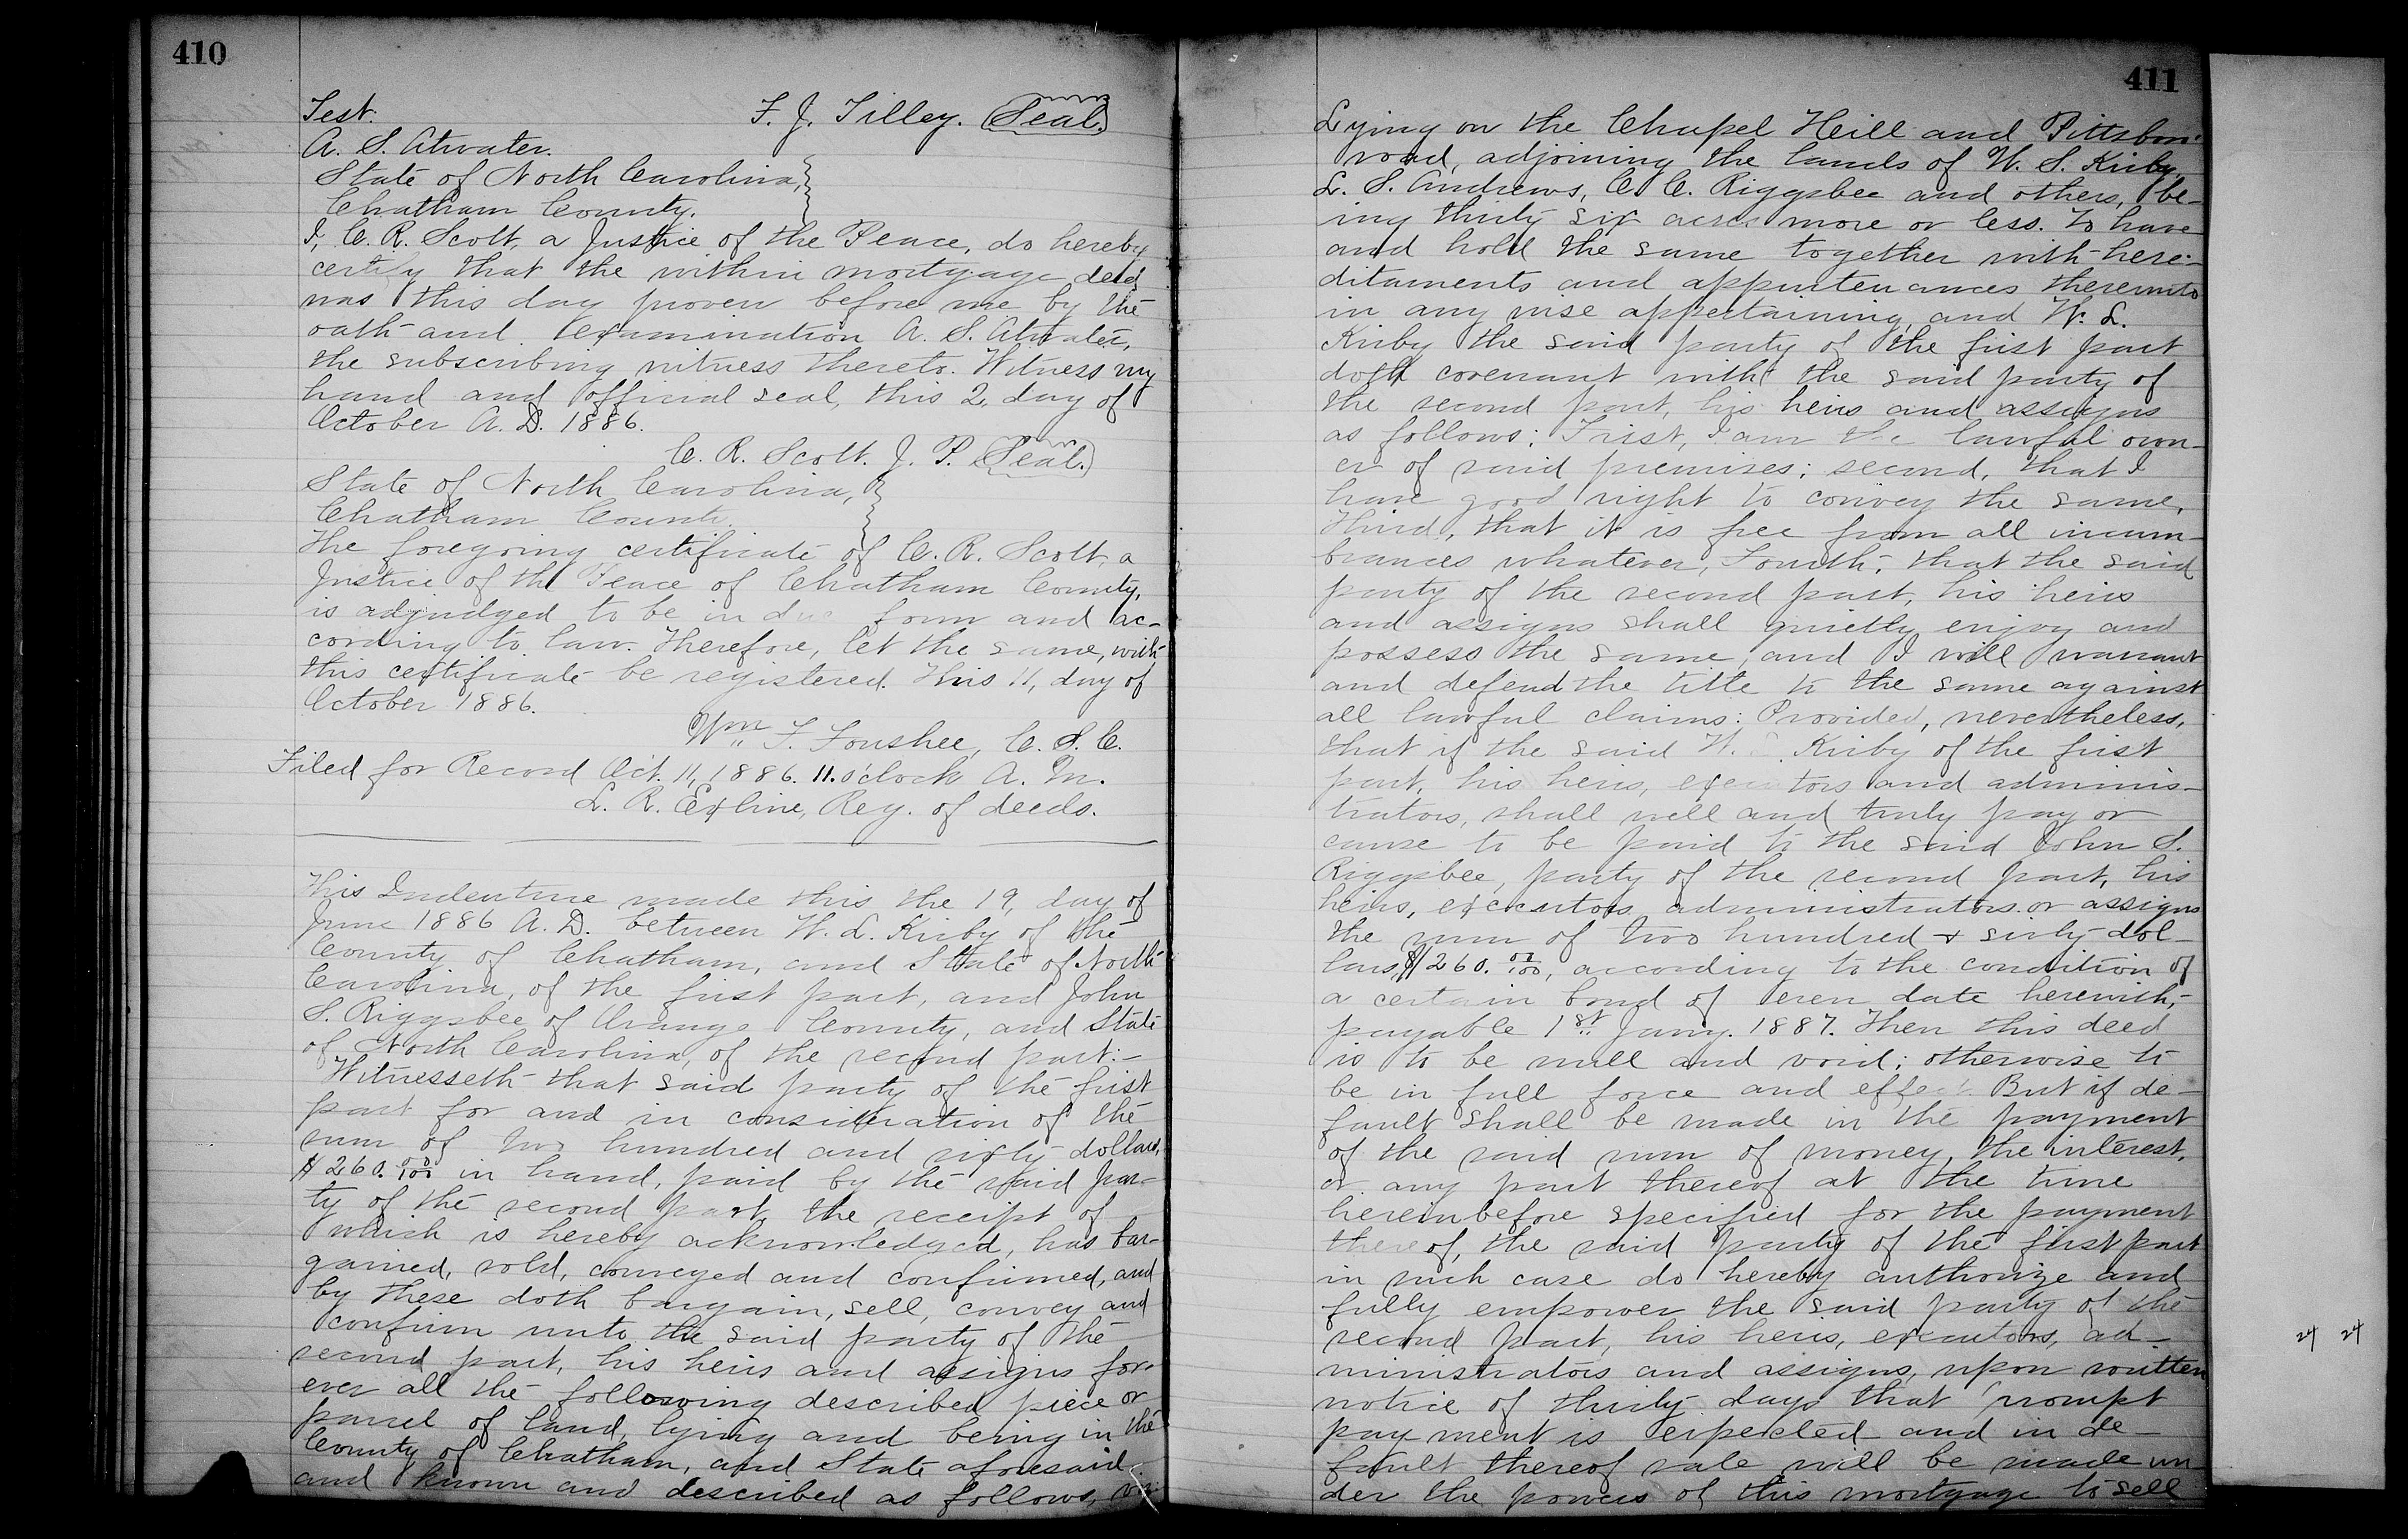 410
Test.
F. J. Tilley. (Seal.)
A. S. Atwater.
State of North Carolina,
Chatham County.
I, C. R. Scott, a Justice of the Peace, do hereby
certify that the within mortgage deed
was this day proven before me by the
oath and examination A. S. Atwater,
the subscribing witness thereto. Witness my
hand and official seal, this 2, day of
October A. D. 1886.
C. R. Scott. J. P. (Seal.)
State of North Carolina,
Chatham County.
The foregoing certificate of C. R. Scott, a
Justice of the Peace of Chatham County,
is adjudged to be in due form and ac-
cording to law. Therefore, let the same, with
this certificate be registered. This 11, day of
October 1886.
Wm F. Foushee, C. S. C.
Filed for Record Oct. 11, 1886. 11. o'clock A. M.
L. R. Exline, Reg. of deeds.
This Indenture made this the 19, day of
June 1886 A. D. between W. L. Kirby of the
County of Chatham, and State of North
Carolina, of the first part, and John
S. Riggsbee of Orange County, and State
of North Carolina, of the second part:-
Witnesseth that said party of the first
part for and in consideration of the
sum of two hundred and sixty dollars,
$260. 00/100 in hand, paid by the said par-
ty of the second part the receipt of
which is hereby acknowledged, has bar-
gained, sold, conveyed and confirmed, and
by these doth bargain, sell, convey and
confirm unto the said party of the
second part, his heirs and assigns for-
ever all the following described piece or
parcel of land, lying and being in the
County of Chatham, and State aforesaid
and known and described as follows, viz:
411
Lying on the Chapel Heill and Pittsboro
road, adjoining the lands of W. S. Kirby,
L. S. Andrews, C. C. Riggsbee and others, be-
ing thirty six acres more or less. To have
and hold the same together with here-
ditaments and appurtenances thereunto
in any wise appertaining, and W. L.
Kirby the said party of the first part
doth covenant with the said party of
the second part, his heirs and assigns
as follows: First, I am the lawful own-
er of said premises; second, that I
have good right to convey the same,
Third, that it is free from all incum-
brances whatever, Fourth, that the said
party of the second part, his heirs
and assigns shall quietly enjoy and
possess the same, and I will warrant
and defend the title to the same against
all lawful claims: Provided, nevertheless,
that if the said W. Kirby of the first
part, his heirs, executors and adminis-
trators, shall well and truly pay or
cause to be paid to the said John S.
Riggsbee, party of the second part, his
heirs, executors administrators or assigns
the sum of two hundred & sixty dol-
lars, $260. 00/100, according to the condition of
a certain bond of even date herewith,
payable 1st Jany. 1887. Then this deed
is to be null and void; otherwise to
be in full force and effect. But if de-
fault shall be made in the payment
of the said sum of money, the interest,
or any part thereof at the time
hereinbefore specified for the payment
thereof, the said party of the first part
in such case do hereby authorize and
fully empower the said party of the
second part, his heirs, executors, ad-
ministrators and assigns, upon written
notice of thirty days that prompt
payment is expected and in de-
fault thereof sale will be made un-
der the powers of this mortgage to sell
24 24